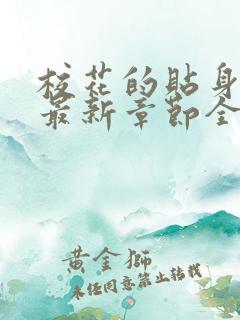 校花的貼身
最新章節全
黃金獅
未经同意禁止转载